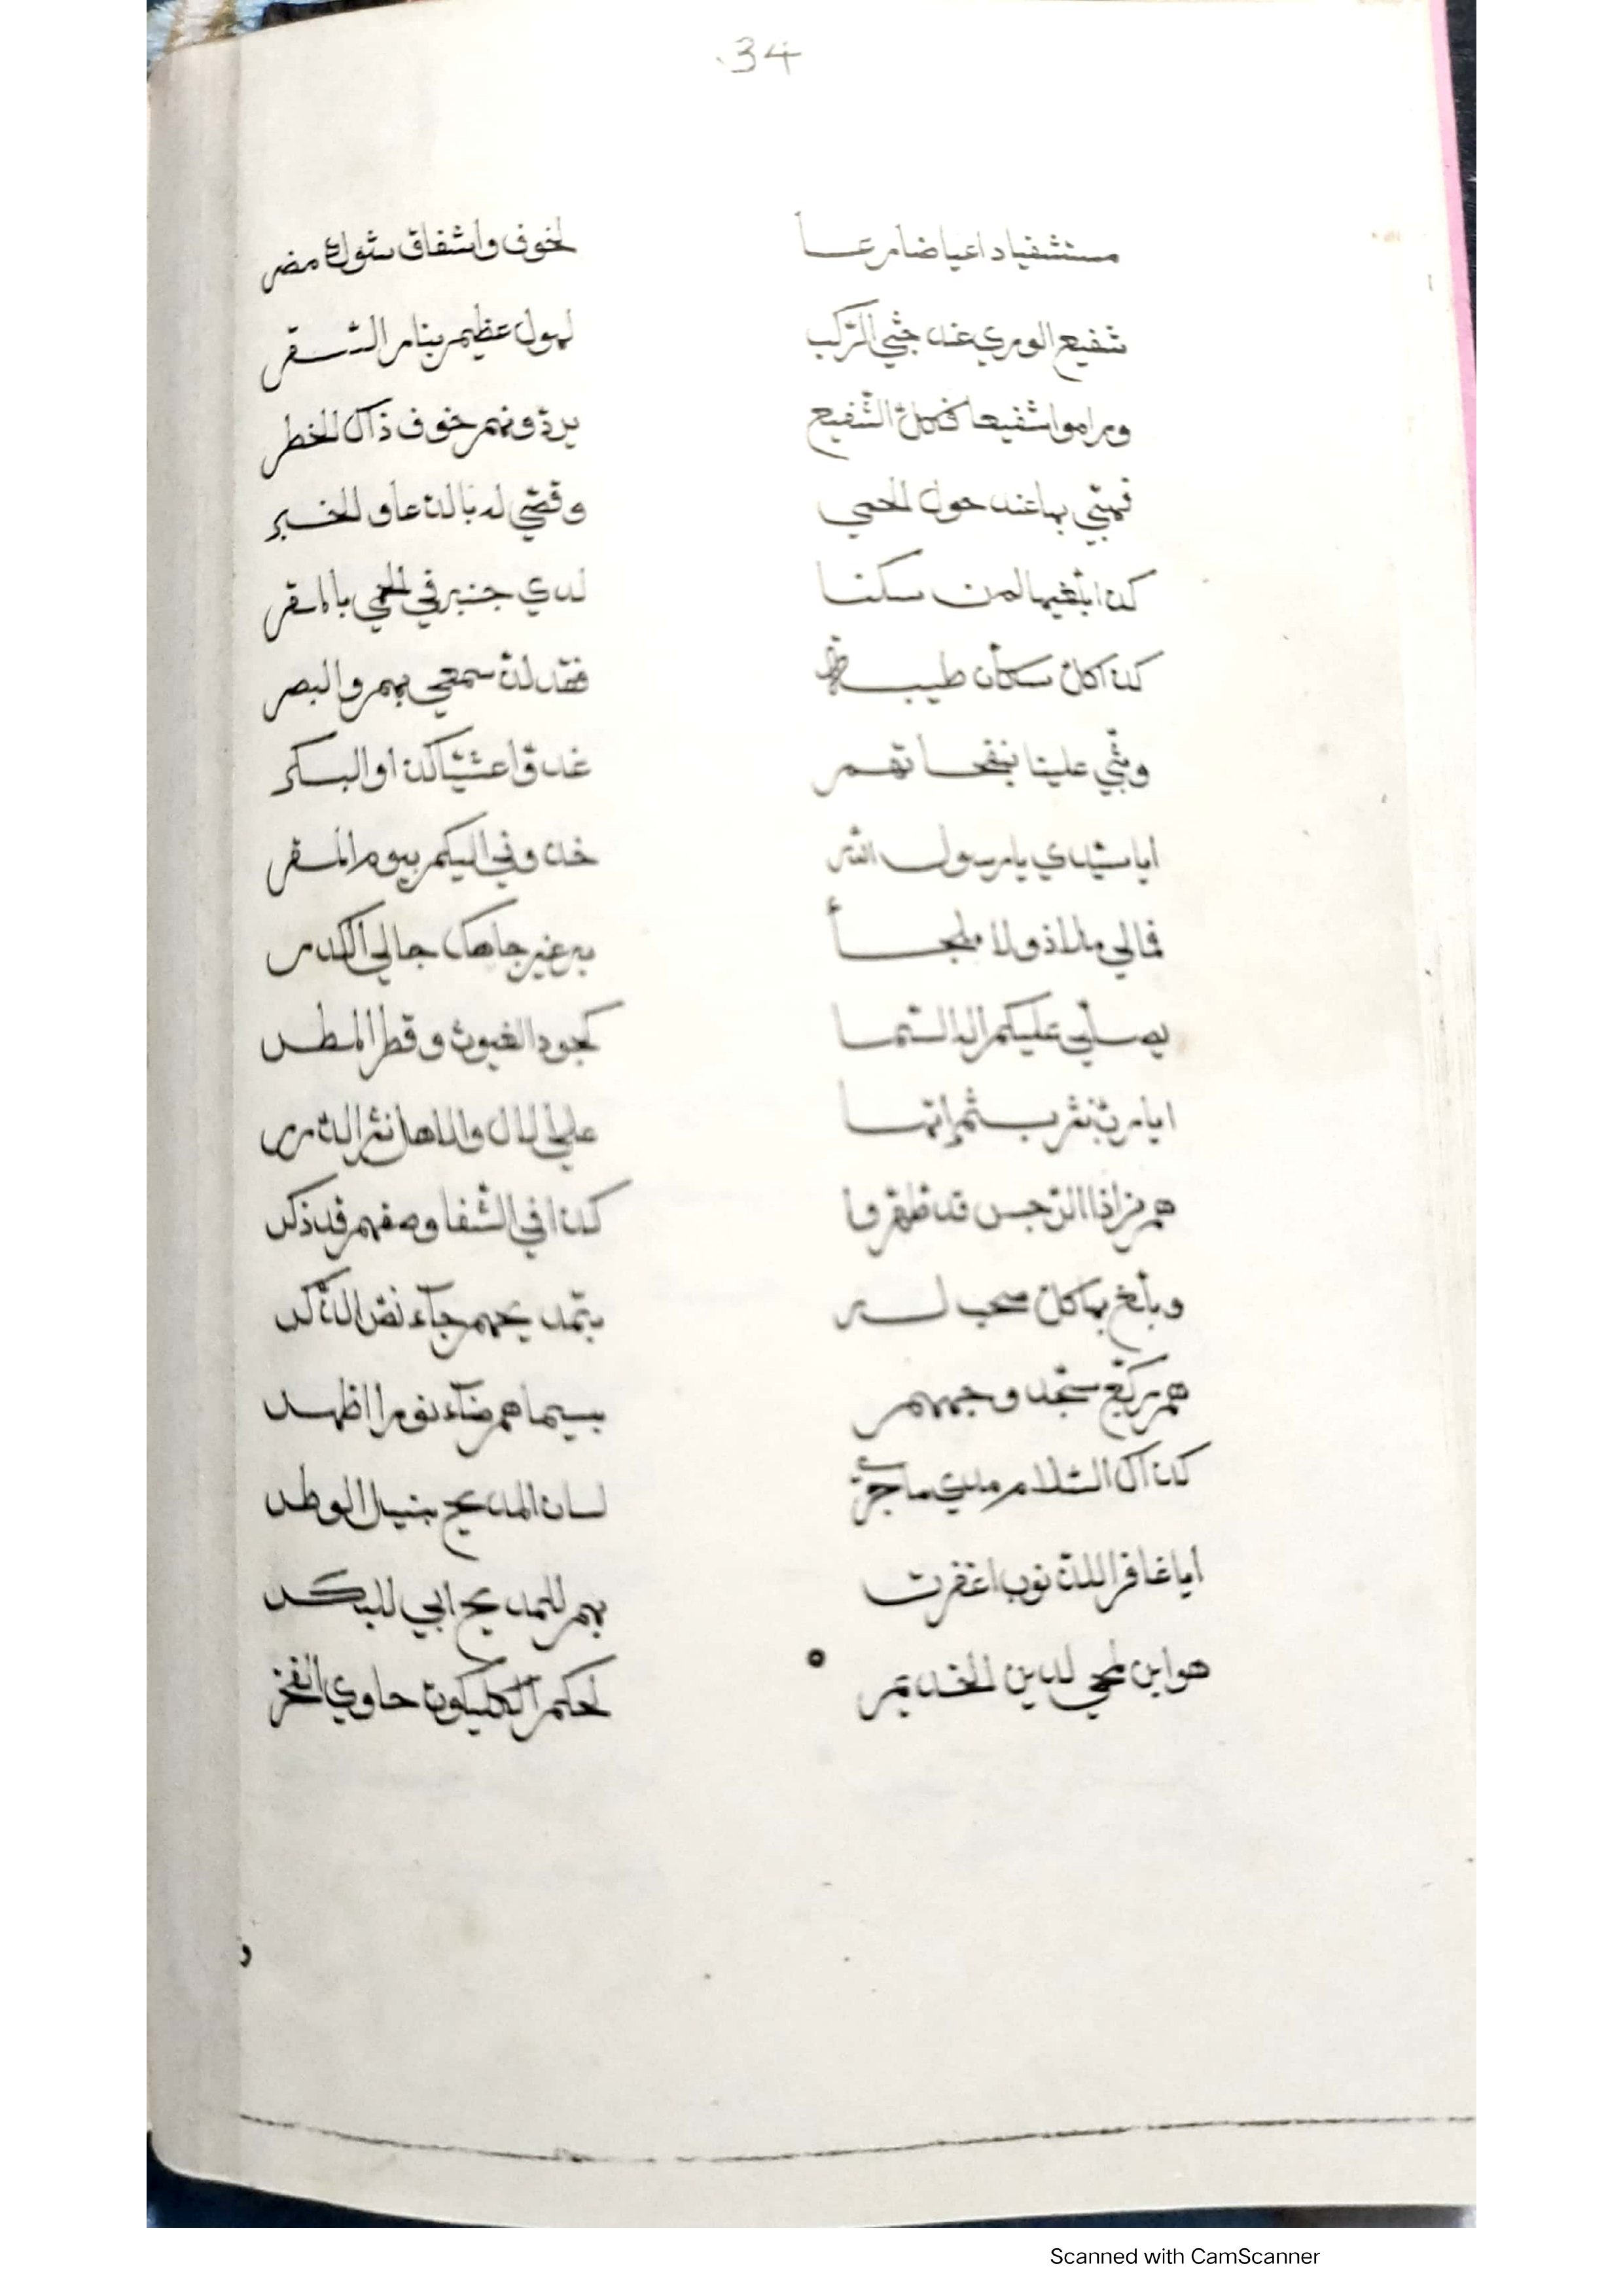 34
مستشفيا داعيا ضارعا لخوف واشفاق مضر
شفيع الوري عند جثي الركب لهول عظيم بنار السقر
وراموا شفيعا فكل الشفيع يردونهم خوف ذاك الخطر
بها عند حول الحمي له بالدعا والخبر
كذا ابلغيها لمن سكنا لدي جنبه في الحمي بالمقر
كذا كل سكان طيبة فقد لذ سمعي بهم والبصر
علينا بنفحاتهم غدوا عشيا كذا والبكر
ايا سيدي يا رسول الله خذوني اليكم بيوم المقر
فمالي ملاذ ولا ملجأ به غير جاهك جالي الكدر
يصلي عليكم اله السما كجود الغيوث وقطر المطر
ايا رب ثم انها علي الال والاهل نثر الدرر
هم من اذا الرجس قد طهروا كذا في الشفا وصفهم قد ذكر
وبلغ بها كل صحب له بتمديحهم جآء نص الذكر
هم ركع سجد وجههم بسيماهم ضآء نورا اظهر
كذاك السلام مدي ما جري لسان المديح بنيل الوطر
ايا غافر الذنوب اغفرت بهم للمديح ابي للبكر
هو ابن لمحي لدين الخديم لحكم الكليكوت حاوي الفخر
و
Scanned with CamScanner